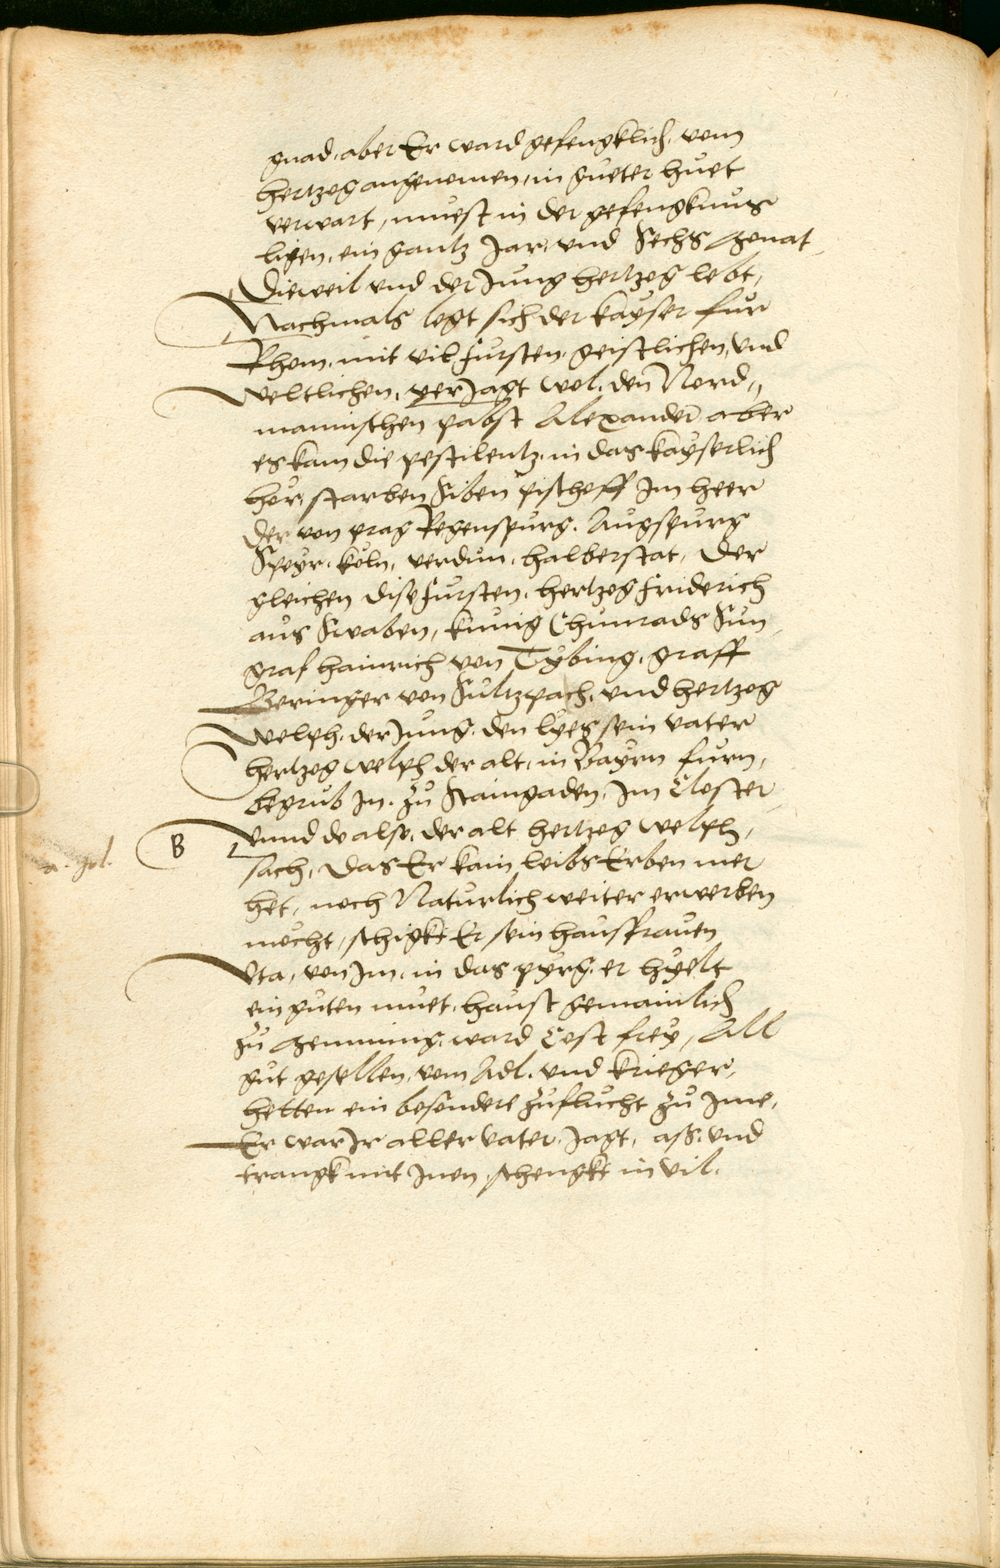 gnad, aber Er ward gefengklich, vom
hertzog angenomen, in gueter huet
verwart, muest in der gefengknus
ligen, ein gantz Jar, und Sechs Monat
Dieweil und der Jung hertzog lebt,
Nachmals legt sich der kayser fur
Rhom, mit vil fursten, geistlichen, und
weltlichen, verJagt wol, den Nord„
mannischen pabst Alexander aber
es kam die pestilentz, in das kayserlich
her, starben Siben pischoff Im heer
der von prag Regenspurg. Augspurg
Speyr. köln, verdun, halberstat, Der
gleichen dise fursten, hertzog friderich
aus Swaben, kunig Chunrads Sun
graf hainrich von Tybing, graff
Beringer von Sultzpach, und hertzog
welph, der Jung, den lyes sein vater
hertzog welph der alt, in Bayrn furn,
begrub In. zu Staingaden, Im Closter
B vnnd do also, der alt hertzog welph,
sach, das Er kain leibs Erben mer
het, noch Naturlich weiter erwerben
mocht, schigkt Er sein hausfrauen
Vta, von Im, in das pyrg, er hyelt
ein guten muet, haust gemainlich
zu Memming, ward Cost frey, All
gut gesellen, vom Adl. und krieger,
hetten ein besondere zuflucht zu Ime,
Er war Ir aller vater, Jagt, ass, und
trangk mit Inen, schengkt in vil.